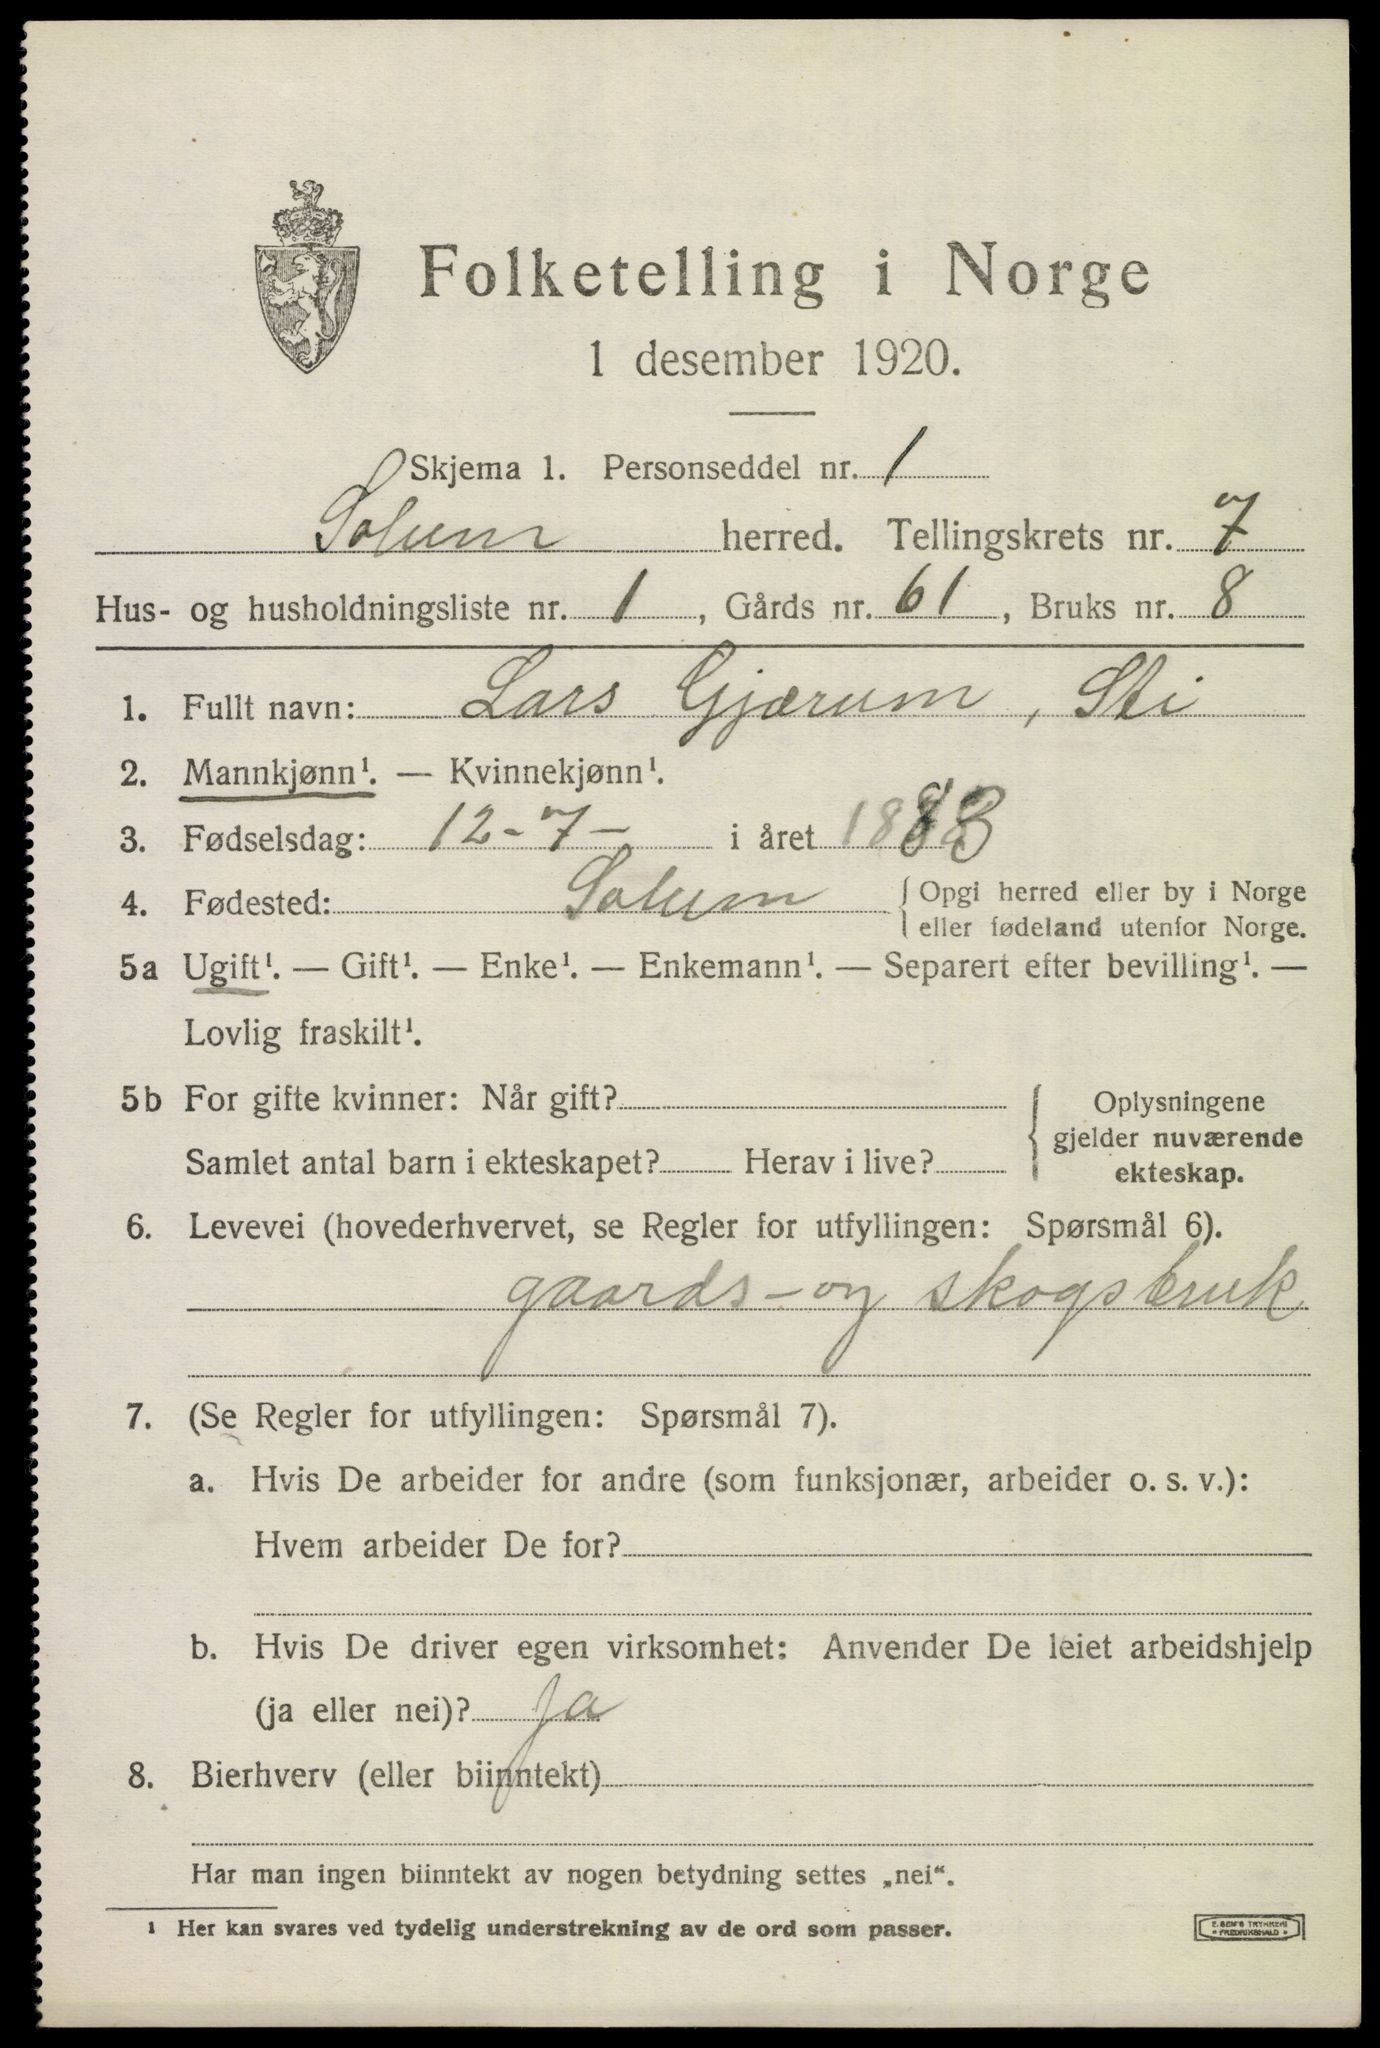 Folketelling i Norge
1 desember 1920.
Skjema 1. Personseddel nr. 1
Solum herred. Tellingskrets nr. 7
Hus- og husholdningsliste nr. 1, Gårds nr. 61, Bruks nr. 8
1. Fullt navn: Lars Gjærum, Sti
2. Mannkjønn¹. — Kvinnekjønn¹.
3. Fødselsdag: 12-7- i året 1883
4. Fødested: Solum { Opgi herred eller by i Norge
eller fødeland utenfor Norge.
5a Ugift¹. — Gift¹. — Enke¹. — Enkemann¹. — Separert efter bevilling¹. —
Lovlig fraskilt¹.
5b For gifte kvinner: Når gift?
Samlet antal barn i ekteskapet? Herav i live?
Oplysningene
gjelder nuværende
ekteskap.
6. Levevei (hovederhvervet, se Regler for utfyllingen: Spørsmål 6).
gaards-og skogsbruk
7. (Se Regler for utfyllingen: Spørsmål 7).
a. Hvis De arbeider for andre (som funksjonær, arbeider o. s. v.):
Hvem arbeider De for?
b. Hvis De driver egen virksomhet: Anvender De leiet arbeidshjelp
(ja eller nei)? Ja
8. Bierhverv (eller biinntekt)
Har man ingen biinntekt av nogen betydning settes „nei“.
¹ Her kan svares ved tydelig understrekning av de ord som passer.
E. SEM'S TRYKKERI
* FREDRIKSHALD *